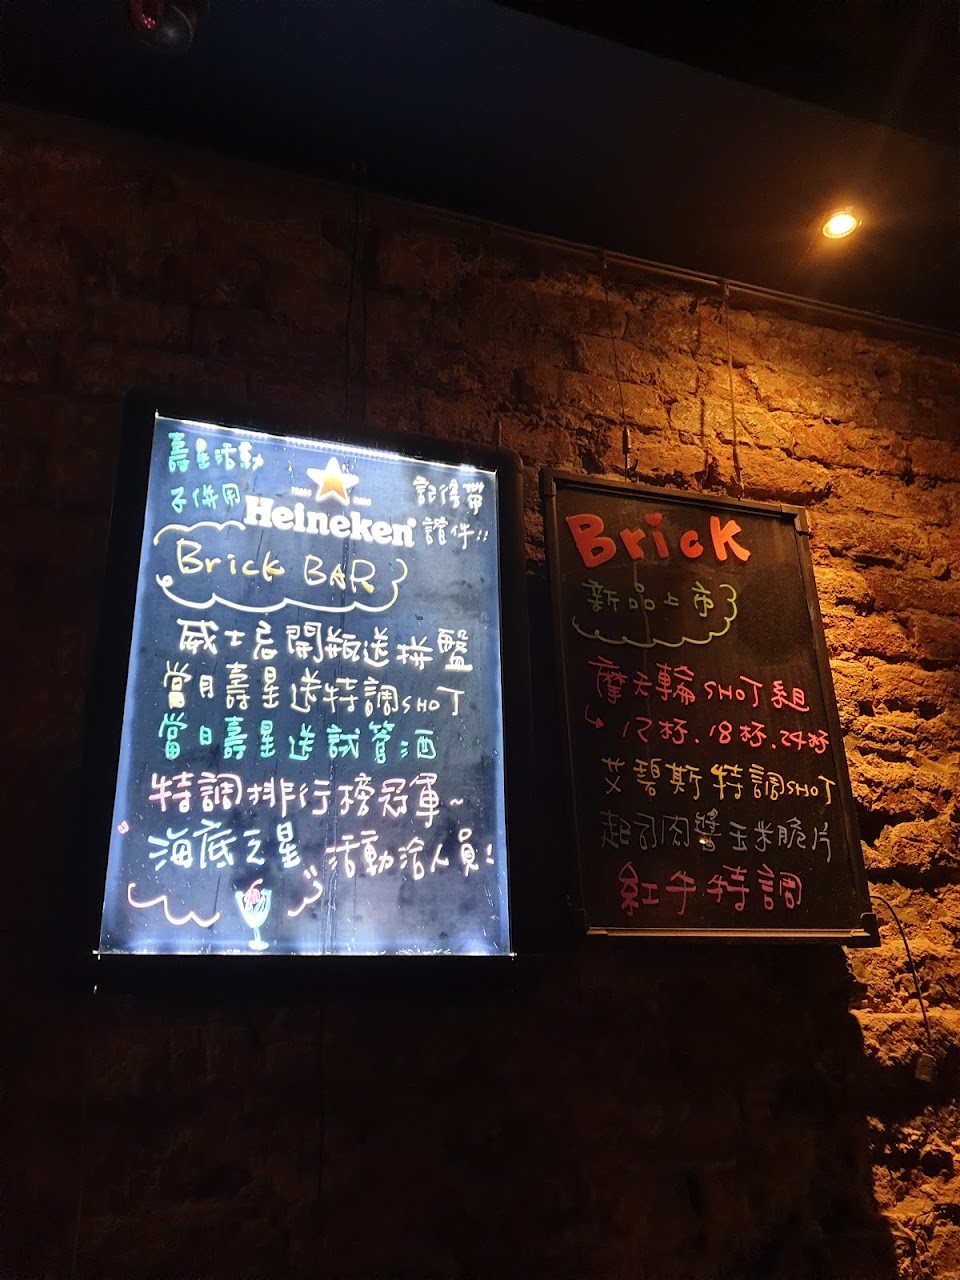 壽星活動
子併用
Heineken
記得帶
證件!!
Brick BAR
威士忌開瓶送拼盤
當月壽星送特調SHOT
當日壽星送試管酒
特調排行榜冠軍~
海底之星 活動洽人員!
Brick
新品上市
摩天輪SHOT組
12杯.18杯.24杯
艾碧斯特調SHOT
起司肉醬玉米脆片
紅牛特調